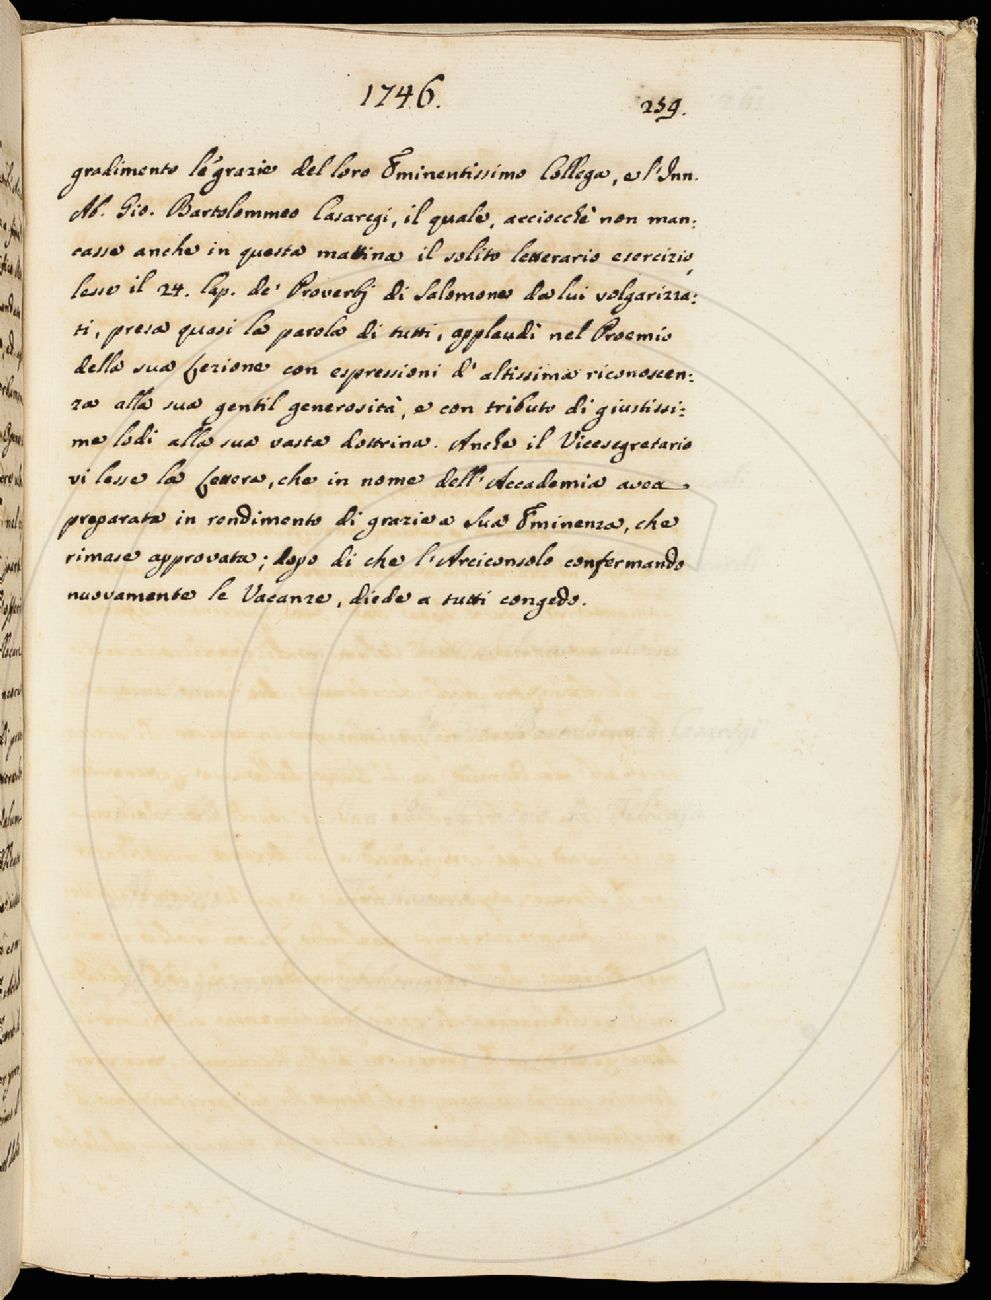 1746.
259.
gradimento le grazie del loro Eminentissimo Collega, e l'Inn.
Ab. Gio. Bartolommeo Casaregi, il quale, acciocchè non man:
casse anche in questa mattina il solito letterario esercizio,
lesse il 24. Cap. de' Proverbj di Salomone da lui volgarizza:
ti, presa quasi la parola di tutti, applaudì nel Proemio
della sua Lezione con espressioni d'altissima riconoscen:
za alla sua gentil generosità, e con tributo di giustissi:
me lodi alla sua vasta dottrina. Anche il Vicesegretario
vi lesse la Lettera, che in nome dell'Accademia avea
preparata in rendimento di grazie a Sua Eminenza, che
rimase approvata; dopo di che l'Arciconsolo confermando
nuovamente le Vacanze, diede a tutti congedo.